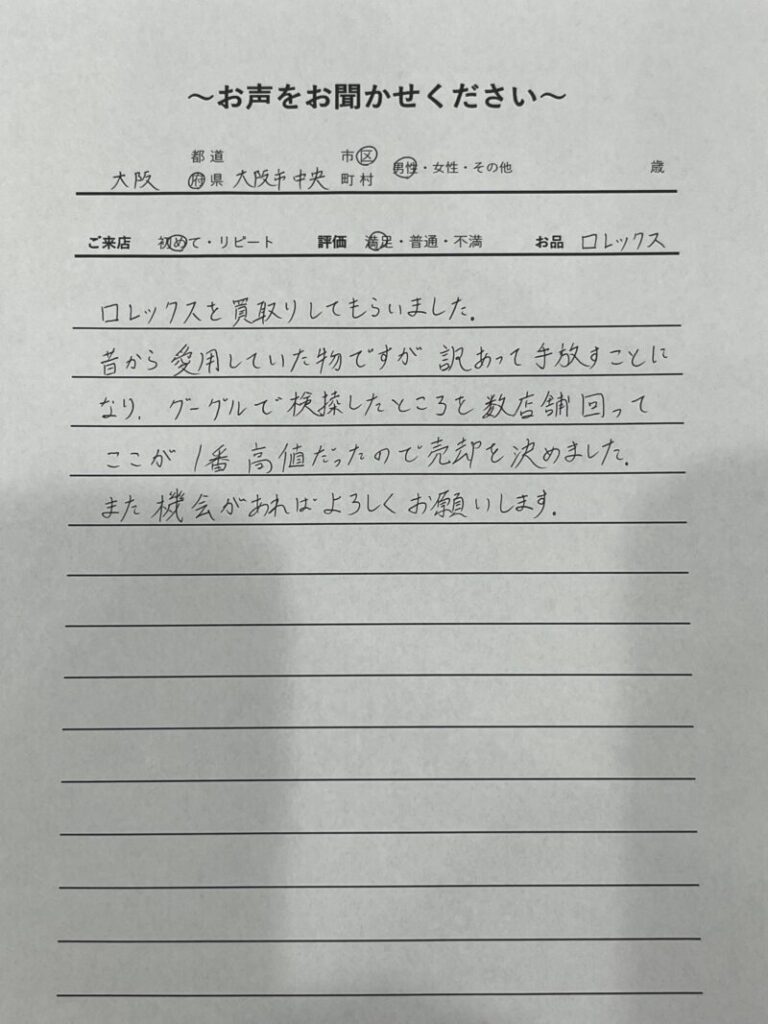 ～お声をお聞かせください～
大阪 都道府県 大阪市中央 市区町村 男性・女性・その他 歳
ご来店 初めて・リピート 評価 満足・普通・不満 お品 ロレックス
ロレックスを買取りしてもらいました.
昔から愛用していた物ですが訳あって手放すことに
なり. グーグルで検索したところを数店舗回って
ここが1番高値だったので売却を決めました.
また機会があればよろしくお願いします.